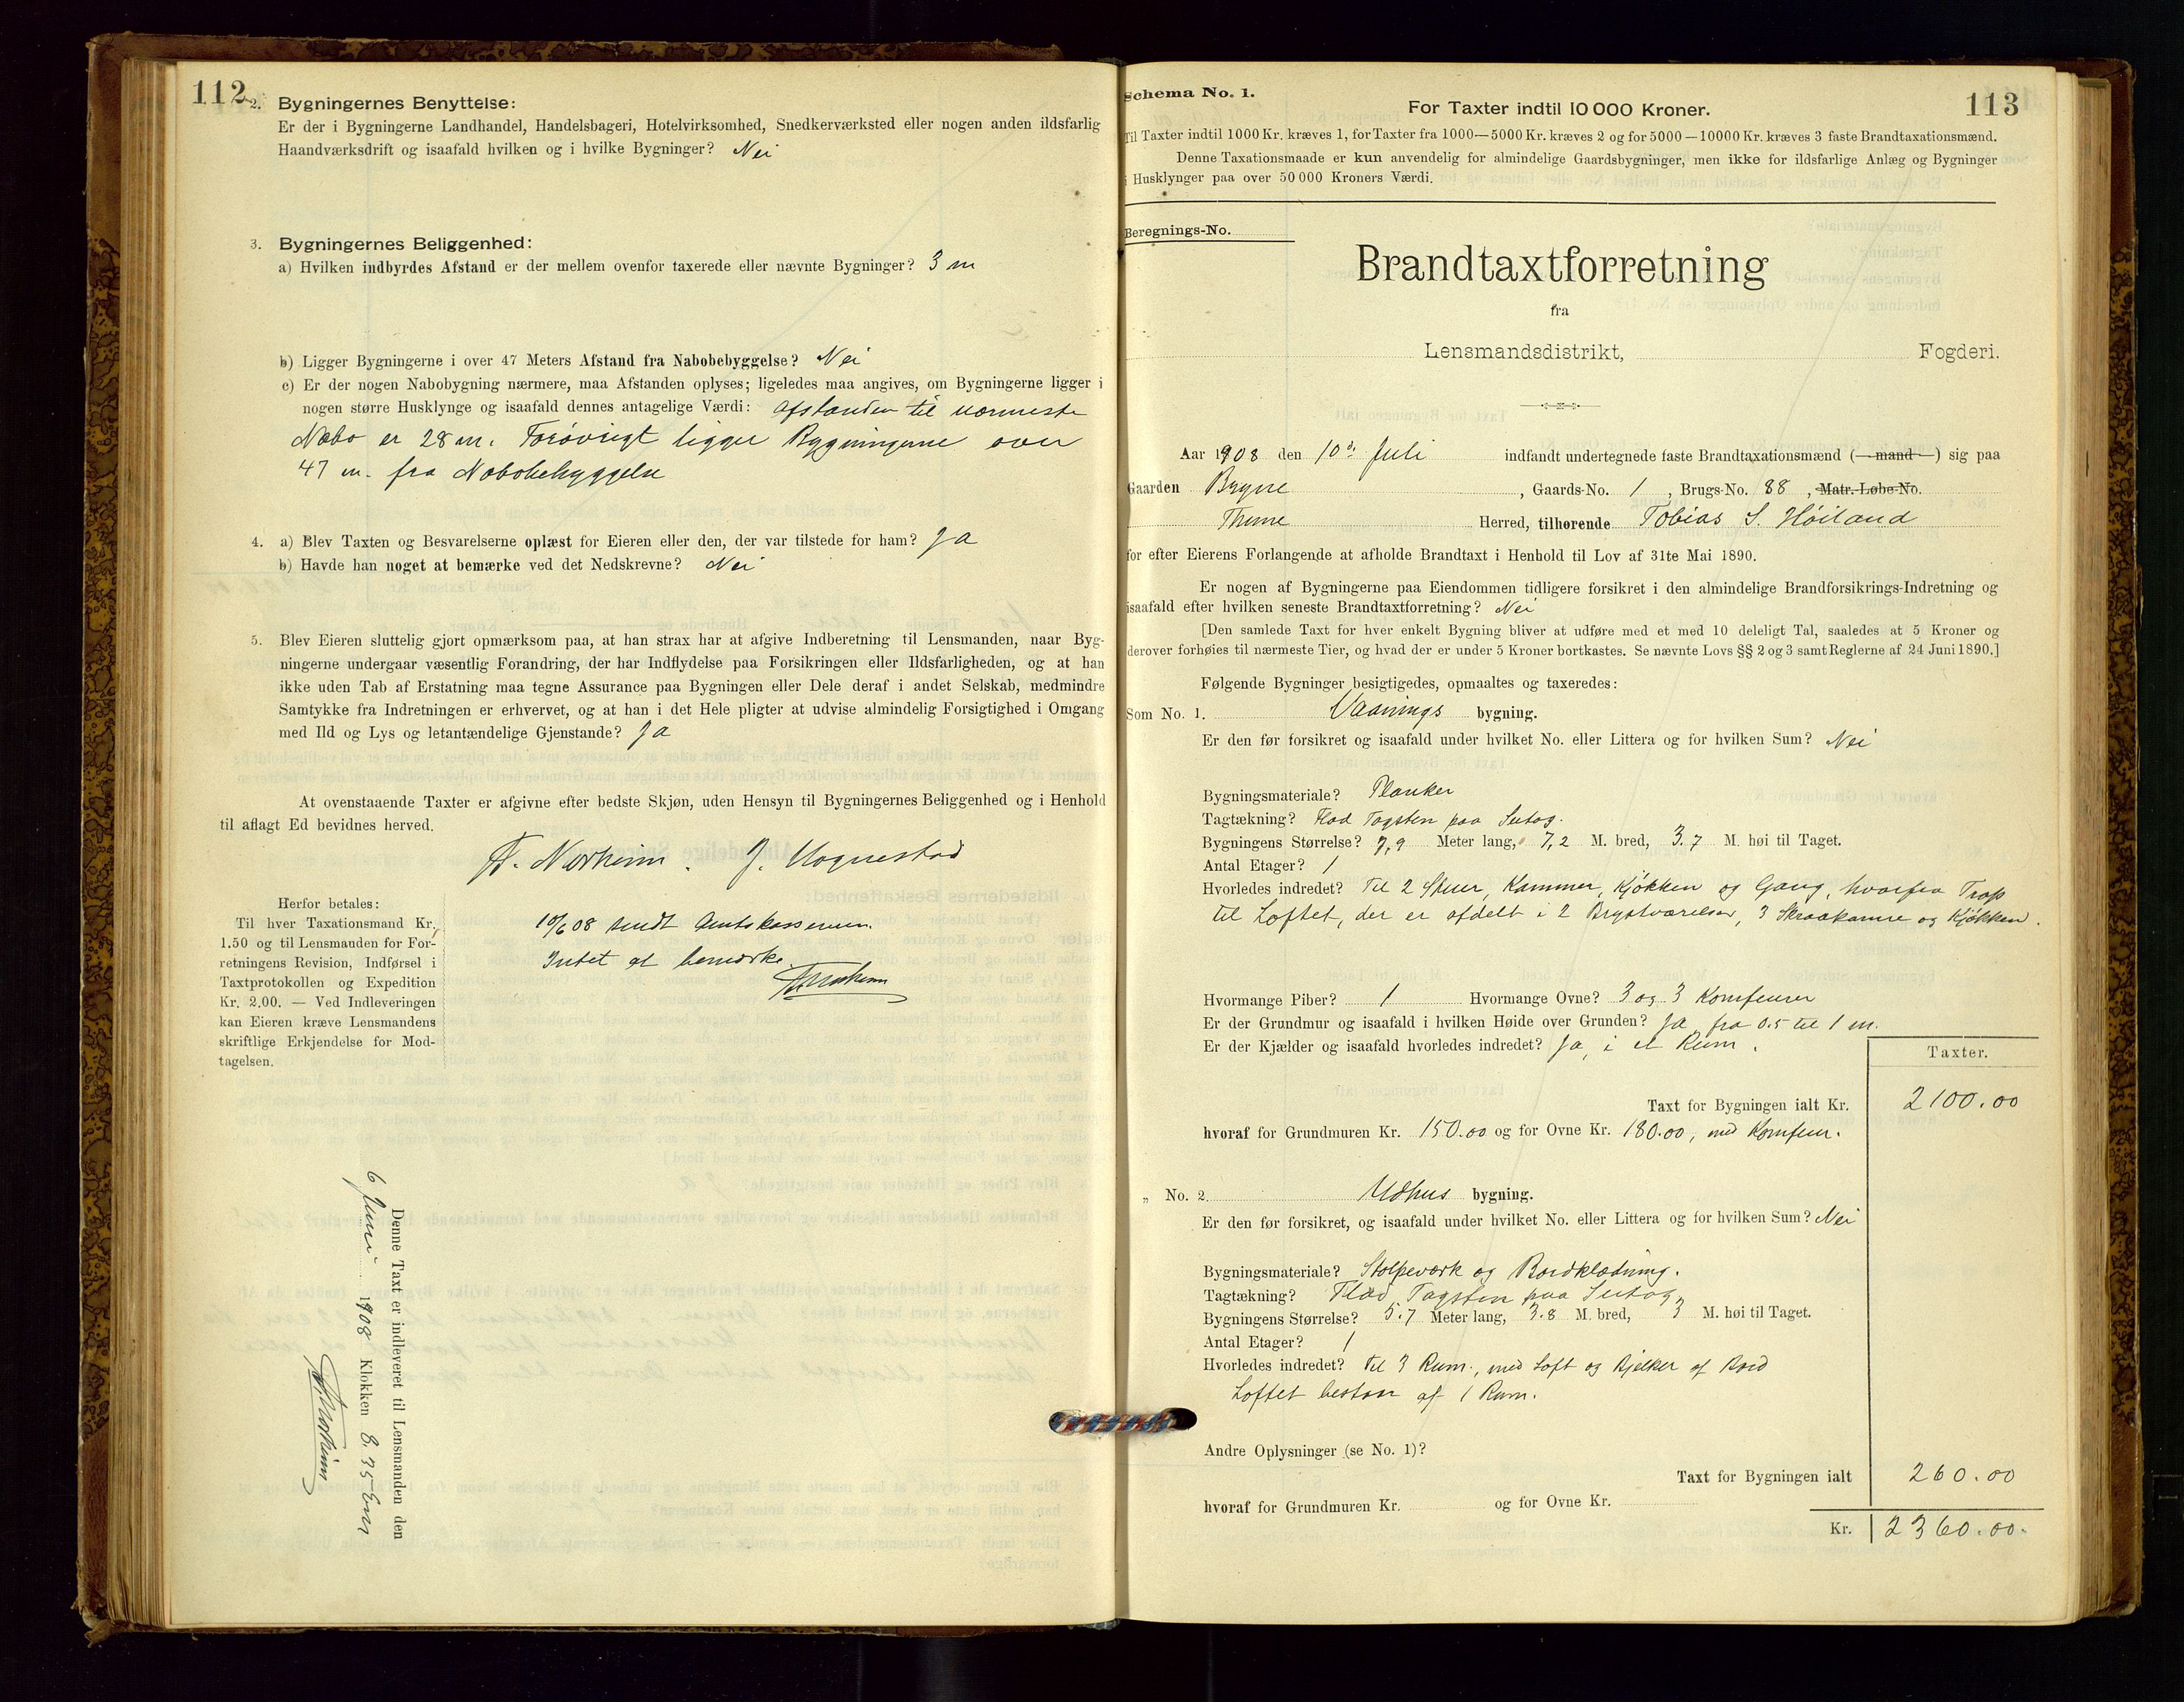 112
2. Bygningernes Benyttelse:
Er der i Bygningerne Landhandel, Handelsbageri, Hotelvirksomhed, Snedkerværksted eller nogen anden ildsfarlig
Haandværksdrift og isaafald hvilken og i hvilke Bygninger? Nei
3. Bygningernes Beliggenhed:
a) Hvilken indbyrdes Afstand er der mellem ovenfor taxerede eller nævnte Bygninger? 3 m
b) Ligger Bygningerne i over 47 Meters Afstand fra Nabobebyggelse? Nei
c) Er der nogen Nabobygning nærmere, maa Afstanden oplyses; ligeledes maa angives, om Bygningerne ligger i
nogen større Husklynge og isaafald dennes antagelige Værdi: Afstanden til nærmeste
Nabo er 28 m. Forøvrigt ligger Bygningerne over
47 m. fra Nabobebyggelse
4. a) Blev Taxten og Besvarelserne oplæst for Eieren eller den, der var tilstede for ham? Ja
b) Havde han noget at bemærke ved det Nedskrevne? Nei
5. Blev Eieren sluttelig gjort opmærksom paa, at han strax har at afgive Indberetning til Lensmanden, naar Byg-
ningerne undergaar væsentlig Forandring, der har Indflydelse paa Forsikringen eller Ildsfarligheden, og at han
ikke uden Tab af Erstatning maa tegne Assurance paa Bygningen eller Dele deraf i andet Selskab, medmindre
Samtykke fra Indretningen er erhvervet, og at han i det Hele pligter at udvise almindelig Forsigtighed i Omgang
med Ild og Lys og letantændelige Gjenstande? Ja
At ovenstaaende Taxter er afgivne efter bedste Skjøn, uden Hensyn til Bygningernes Beliggenhed og i Henhold
til aflagt Ed bevidnes herved.
Nærheim. J. Hognestad
Herfor betales:
Til hver Taxationsmand Kr.
1.50 og til Lensmanden for For-
retningens Revision, Indførsel i
Taxtprotokollen og Expedition
Kr. 2.00. — Ved Indleveringen
kan Eieren kræve Lensmandens
skriftlige Erkjendelse for Mod-
tagelsen.
10/6 08 sendt Amtskassereren.
Intet at bemærke.
Nærheim
Denne Taxt er indleveret til Lensmanden den
6 Juni 1908 Klokken 8.35 Em
Nærheim
113
Schema No. 1.
For Taxter indtil 10 000 Kroner.
Til Taxter indtil 1000 Kr. kræves 1, for Taxter fra 1000—5000 Kr. kræves 2 og for 5000—10000 Kr. kræves 3 faste Brandtaxationsmænd.
Denne Taxationsmaade er kun anvendelig for almindelige Gaardsbygninger, men ikke for ildsfarlige Anlæg og Bygninger
i Husklynger paa over 50 000 Kroners Værdi.
Beregnings-No.
Brandtaxtforretning
fra
Lensmandsdistrikt, Fogderi.
Aar 1908 den 10de Juli indfandt undertegnede faste Brandtaxationsmænd (—mand—) sig paa
Gaarden Bryne, Gaards-No. 1, Brugs-No. 88, Matr.-Løbe-No.
Thime Herred, tilhørende Tobias S. Høiland
for efter Eierens Forlangende at afholde Brandtaxt i Henhold til Lov af 31te Mai 1890.
Er nogen af Bygningerne paa Eiendommen tidligere forsikret i den almindelige Brandforsikrings-Indretning og
isaafald efter hvilken seneste Brandtaxtforretning? Nei
[Den samlede Taxt for hver enkelt Bygning bliver at udføre med et med 10 deleligt Tal, saaledes at 5 Kroner og
derover forhøies til nærmeste Tier, og hvad der er under 5 Kroner bortkastes. Se nævnte Lovs §§ 2 og 3 samt Reglerne af 24 Juni 1890.]
Følgende Bygninger besigtigedes, opmaaltes og taxeredes:
Som No. 1. Vaanings bygning.
Er den før forsikret og isaafald under hvilket No. eller Littera og for hvilken Sum? Nei
Bygningsmateriale? Planker
Tagtækning? Flad Tagsten paa Sutag.
Bygningens Størrelse? 7,9 Meter lang, 7,2 M. bred, 3.7 M. høi til Taget.
Antal Etager? 1
Hvorledes indredet? Til 2 Stuer, Kammer, Kjøkken og Gang, hvorfra Trap
til Loftet, der er afdelt i 2 Brystværelser, 3 Skraakamre og Kjøkken.
Hvormange Piber? 1 Hvormange Ovne? 3 og 3 Komfeurer
Er der Grundmur og isaafald i hvilken Høide over Grunden? Ja fra 0.5 til 1 m.
Er der Kjælder og isaafald hvorledes indredet? Ja, i et Rum.
Taxter.
Taxt for Bygningen ialt Kr. 2100.00
hvoraf for Grundmuren Kr. 150.00 og for Ovne Kr. 180.00, med Komfeur.
„ No. 2. Udhus bygning.
Er den før forsikret, og isaafald under hvilket No. eller Littera og for hvilken Sum? Nei
Bygningsmateriale? Stolpeværk og Bordklædning.
Tagtækning? Flad Tagsten paa Sutag
Bygningens Størrelse? 5.7 Meter lang, 3.8 M. bred, 3 M. høi til Taget.
Antal Etager? 1
Hvorledes indredet? Til 3 Rum, med Loft og Bjelker af Bord
Loftet bestaar af 1 Rum.
Andre Oplysninger (se No. 1)?
Taxt for Bygningen ialt 260.00
hvoraf for Grundmuren Kr. og for Ovne Kr.
Kr. 2360.00.